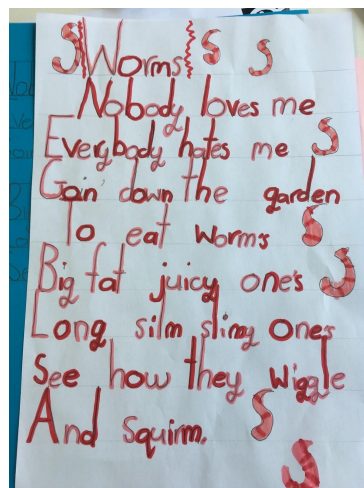 Worms
Nobody loves me
Everybody hates me
Goin' down the garden
To eat worms
Big fat juicy one's
Long silm slimy ones
See how they wiggle
And squirm.